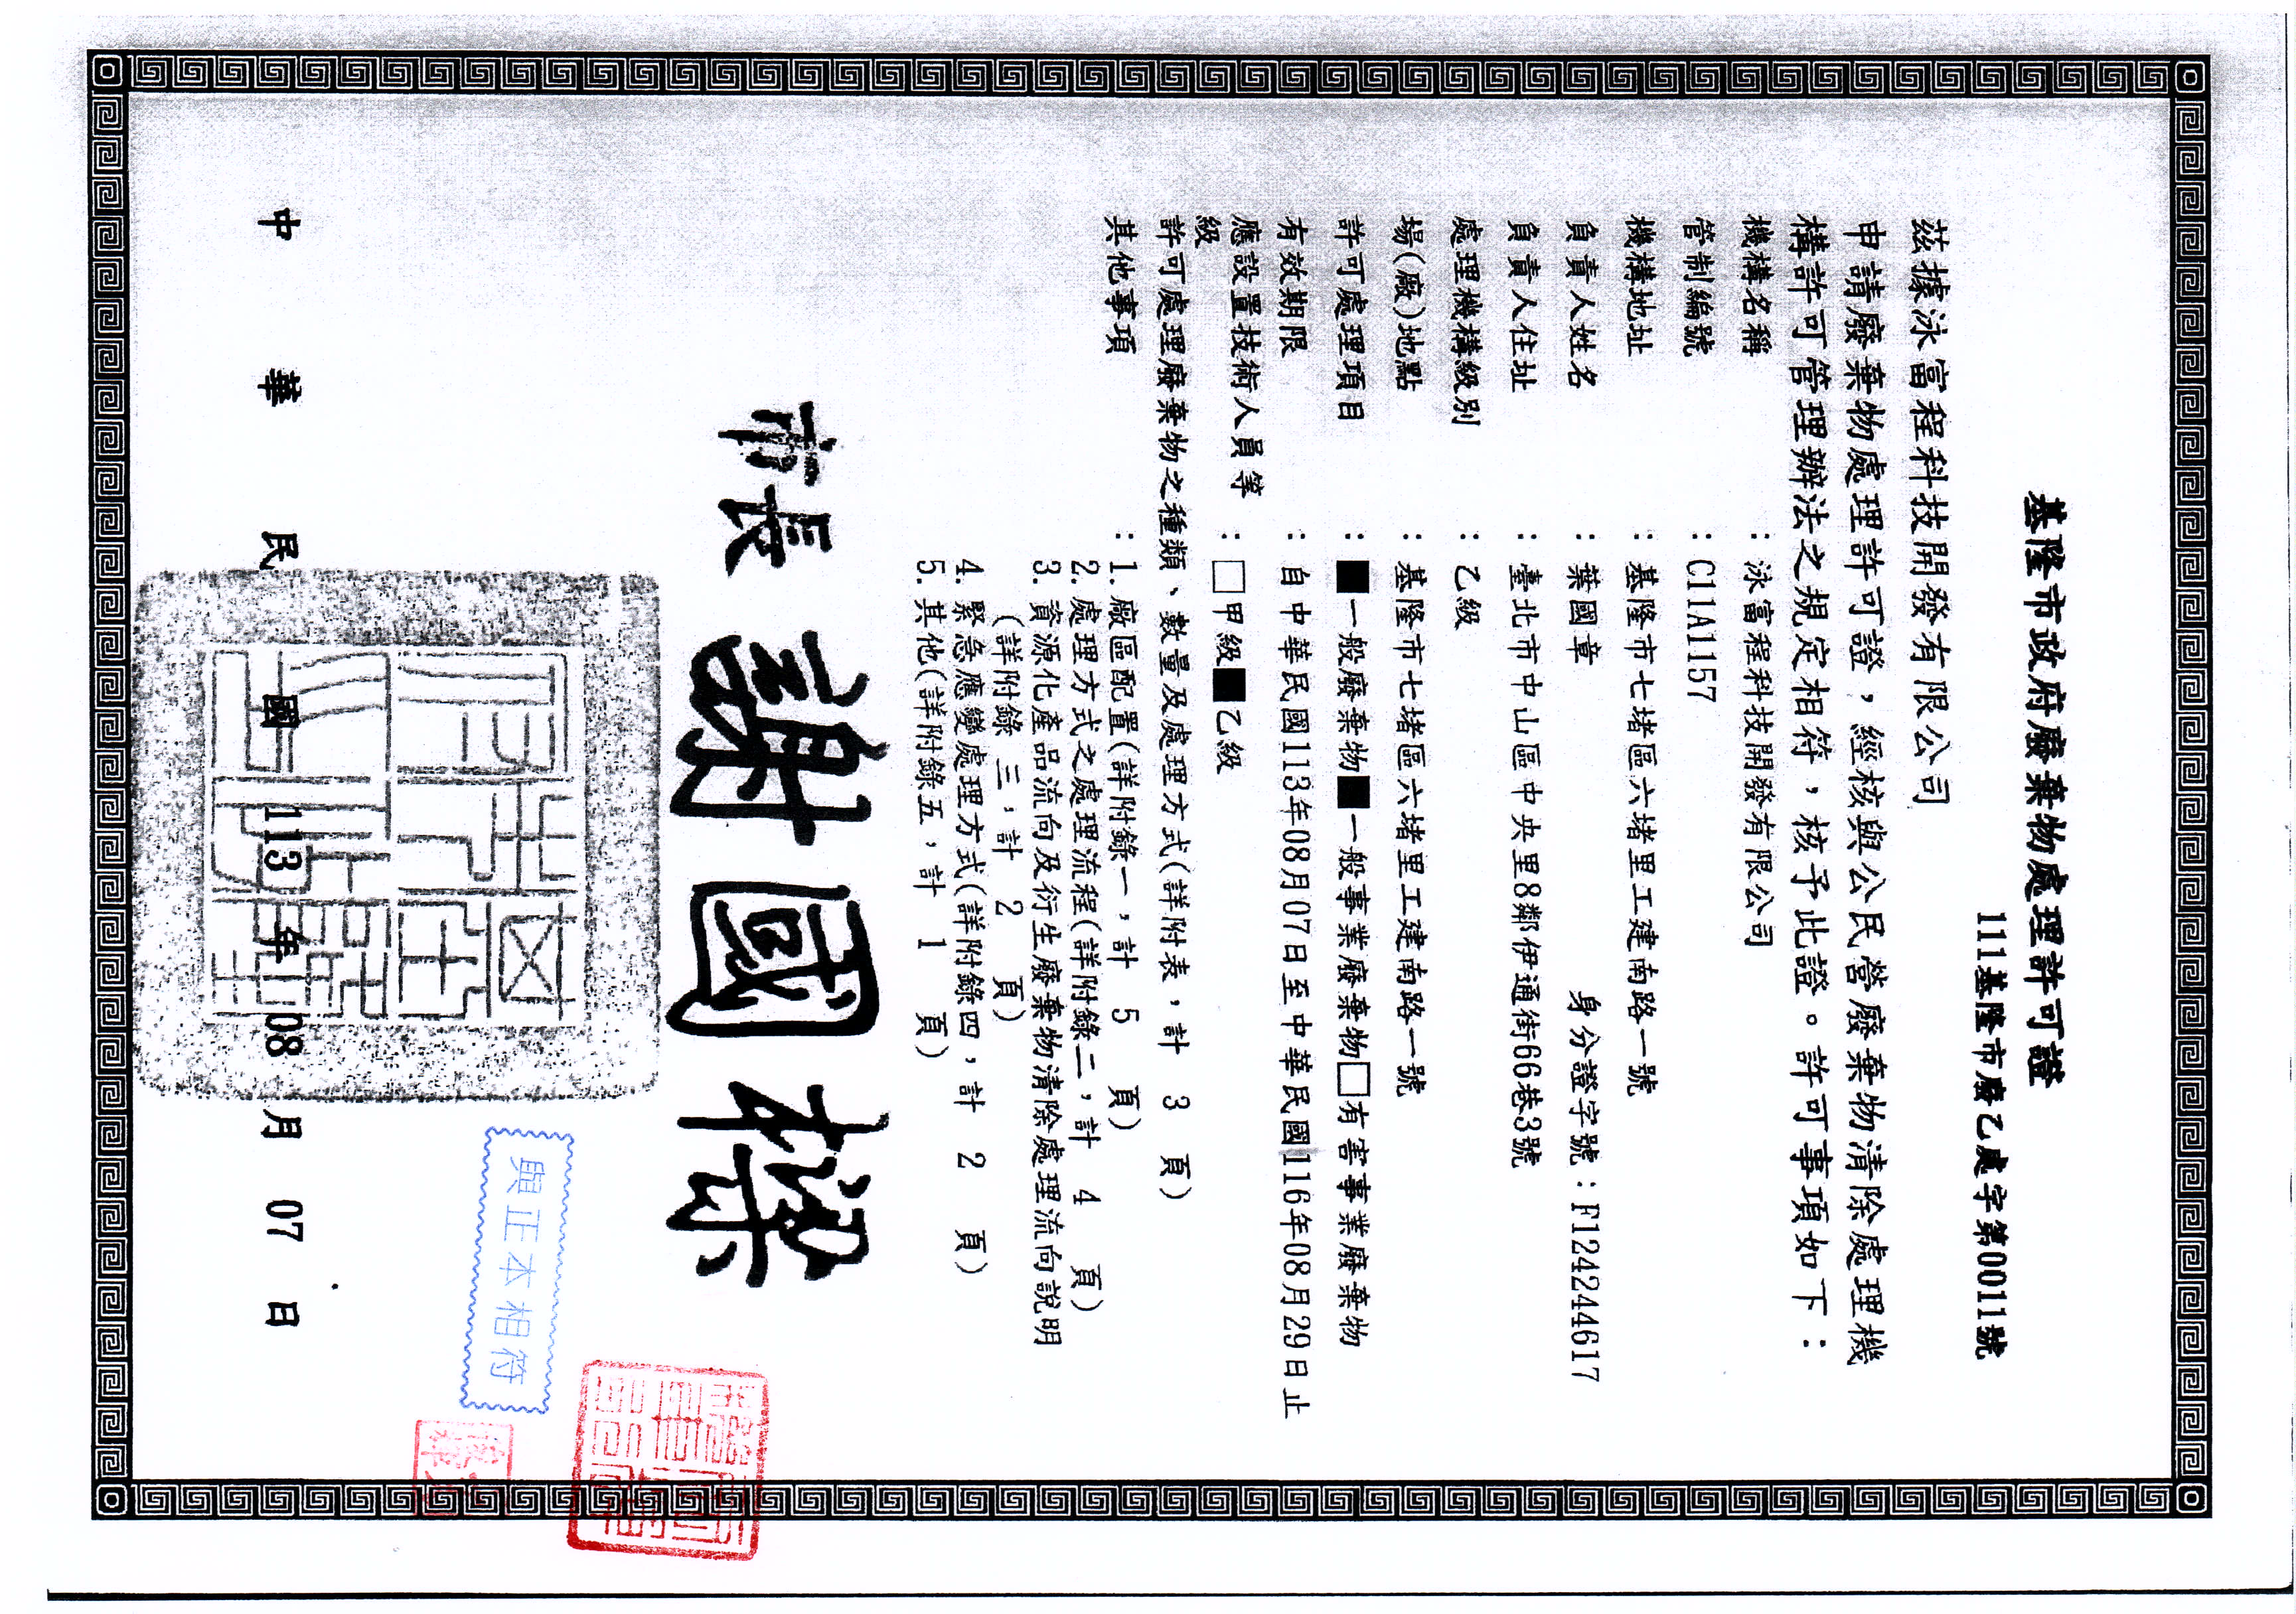 基隆市政府廢棄物處理許可證
111基隆市廢乙處字第0011號
茲據泳富程科技開發有限公司
申請廢棄物處理許可證，經核與公民營廢棄物清除處理機
構許可管理辦法之規定相符，核予此證。許可事項如下：
機構名稱：泳富程科技開發有限公司
管制編號：C11A1157
機構地址：基隆市七堵區六堵里工建南路一號
負責人姓名：葉國章 身分證字號：F124244617
負責人住址：臺北市中山區中央里8鄰伊通街66巷3號
處理機構級別：乙級
場(廠)地點：基隆市七堵區六堵里工建南路一號
許可處理項目：■一般廢棄物■一般事業廢棄物□有害事業廢棄物
有效期限：自中華民國113年08月07日至中華民國116年08月29日止
應設置技術人員等
級：□甲級■乙級
許可處理廢棄物之種類、數量及處理方式(詳附表，計 3 頁)
其他事項：1.廠區配置(詳附錄一，計 5 頁)
2.處理方式之處理流程(詳附錄二，計 4 頁)
3.資源化產品流向及衍生廢棄物清除處理流向說明
(詳附錄 三，計 2 頁)
4.緊急應變處理方式(詳附錄四，計 2 頁)
5.其他(詳附錄五，計 1 頁)
市長 謝國樑
與正本相符
中華民國 113 年 08 月 07 日